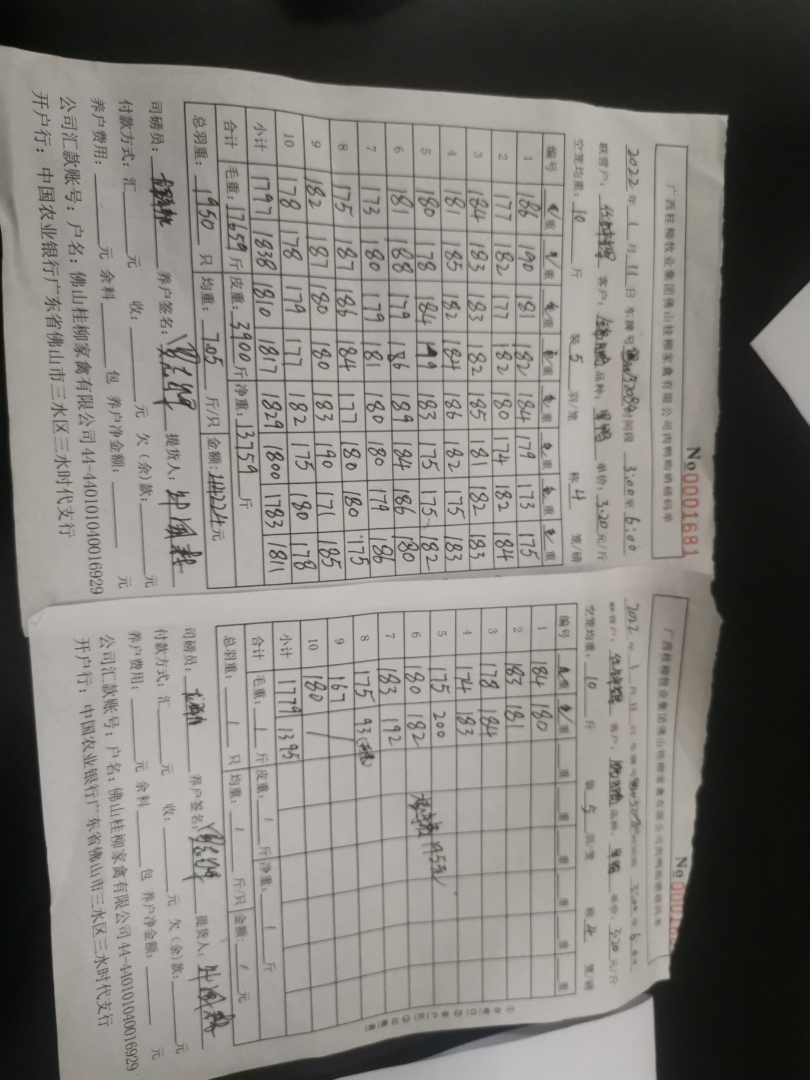 广西桂柳牧业集团佛山桂柳家禽有限公司肉鸭购销磅码单
No 0001681
2022 年 1 月 11 日 车牌号 时间段 3:00 至 6:00
联营户: 客户: 品种: 单价: 3.20 元/斤
空笼均重: 10 斤 装 5 羽/笼 称 4 笼/磅
编号 毛重 毛重 毛重 毛重 毛重 毛重 毛重 毛重
1 186 190 181 182 184 179 173 175
2 177 182 177 182 180 174 182 184
3 184 183 183 182 185 181 182 183
4 181 185 182 184 186 182 175 183
5 180 178 184 179 183 175 175 182
6 181 188 179 186 189 184 186 180
7 173 180 179 181 180 180 179 186
8 175 187 186 184 177 180 180 175
9 182 187 180 180 183 190 171 185
10 178 178 179 177 182 175 180 178
小计 1797 1838 1810 1817 1829 1800 1783 1811
合计 毛重: 17659 斤 皮重: 3900 斤 净重: 13759 斤
总羽重: 1950 只 均重: 7.05 斤/只 金额: 44224 元
司磅员: 养户签名: 提货人:
付款方式: 汇 元 收: 元 欠(余)款: 元
养户费用: 元 余料 包 养户净金额: 元
公司汇款账号: 户名: 佛山桂柳家禽有限公司 44-440101040016929
开户行: 中国农业银行广东省佛山市三水区三水时代支行
广西桂柳牧业集团佛山桂柳家禽有限公司肉鸭购销磅码单
No
2022 年 1 月 11 日 3:00 至 6:00
客户: 品种: 单价: 3.20 元/斤
空笼均重: 10 斤 装 5 羽/笼 称 4 笼/磅
编号 毛重 毛重 重 重 重 重 重 重
1 184 180
2 183 181
3 178 184
4 174 183
5 175 200
6 180 182
7 183 192
8 175 93
9 167 /
10 180
小计 1779 1395
合计 毛重: / 斤 皮重: / 斤 净重: / 斤
总羽重: / 只 均重: / 斤/只 金额: / 元
司磅员: 养户签名: 提货人:
付款方式: 汇 元 收: 元 欠(余)款: 元
养户费用: 元 余料 包 养户净金额: 元
公司汇款账号: 户名: 佛山桂柳家禽有限公司 44-440101040016929
开户行: 中国农业银行广东省佛山市三水区三水时代支行